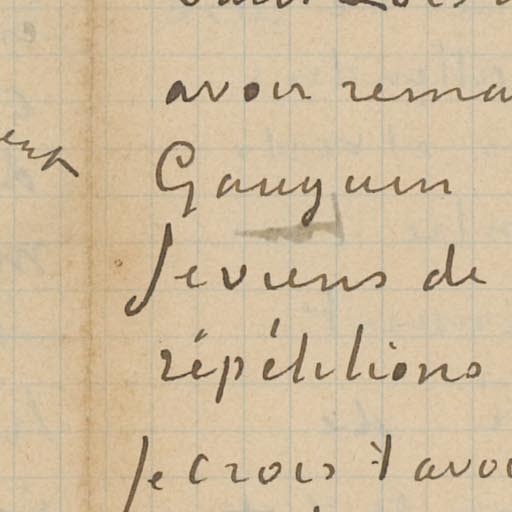 avoir rema
Gauguin
Je viens de
répétitions
Je crois t'avoi